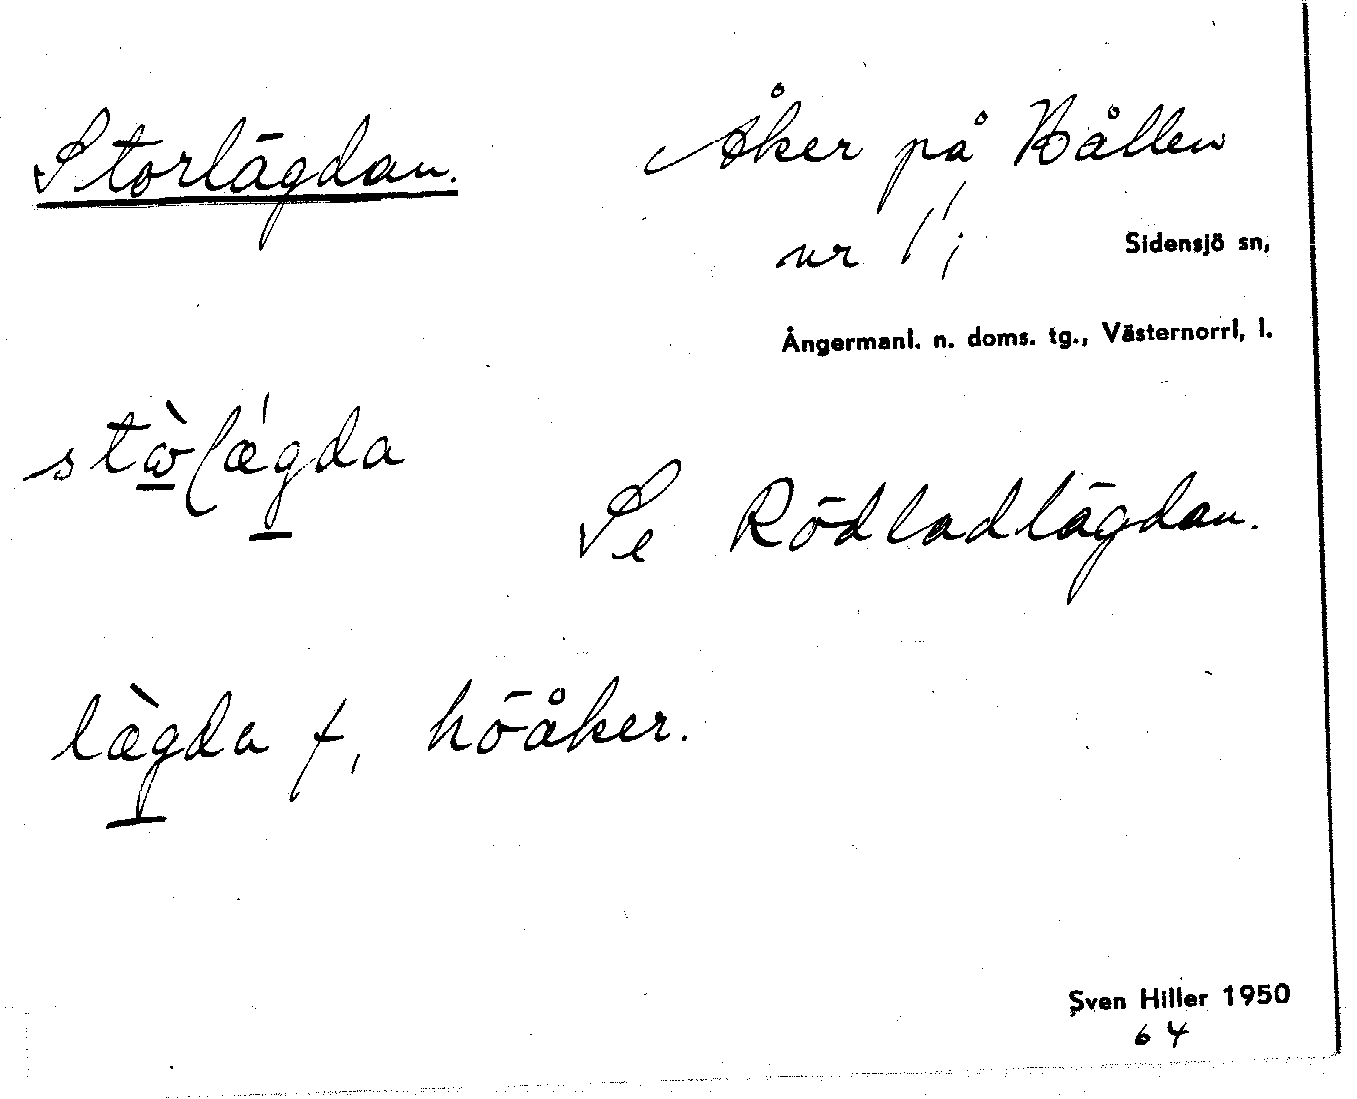 Storlägdan.
Åker på Hållen
nr 1;
Sidensjö sn,
Ångermanl. n. doms. tg., Västernorrl, l.
stὼlǽgda
Se Rödladlägdan.
lægda f, höåker.
Sven Hiller 1950
64